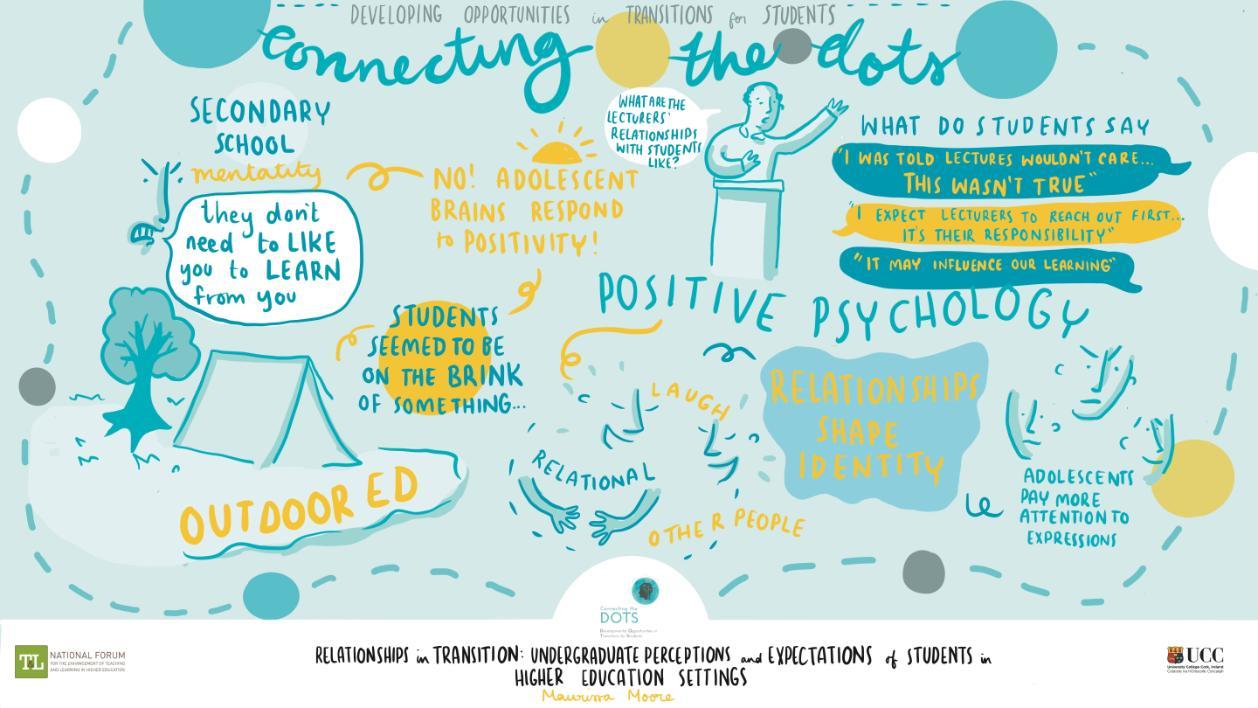 DEVELOPING OPPORTUNITIES in TRANSITIONS for STUDENTS
connecting the dots
SECONDARY
SCHOOL
mentatity
they don't
need to LIKE
you to LEARN
from you
NO! ADOLESCENT
BRAINS RESPOND
to POSITIVITY!
WHAT ARE THE
LECTURERS'
RELATIONSHIPS
WITH STUDENTS
LIKE?
WHAT DO STUDENTS SAY
"I WAS TOLD LECTURES WOULDN'T CARE...
THIS WASN'T TRUE"
"I EXPECT LECTURERS TO REACH OUT FIRST...
IT'S THEIR RESPONSIBILITY"
"IT MAY INFLUENCE OUR LEARNING"
STUDENTS
SEEMED TO BE
ON THE BRINK
OF SOMETHING...
OUTDOOR ED
POSITIVE PSYCHOLOGY
LAUGH
RELATIONAL
OTHER PEOPLE
RELATIONSHIPS
SHAPE
IDENTITY
ADOLESCENTS
PAY MORE
ATTENTION TO
EXPRESSIONS
Connecting the
DOTS
Developmental Opportunities in
Transitions for Students
TL
NATIONAL FORUM
FOR THE ENHANCEMENT OF TEACHING
AND LEARNING IN HIGHER EDUCATION
RELATIONSHIPS in TRANSITION: UNDERGRADUATE PERCEPTIONS and EXPECTATIONS of STUDENTS in
HIGHER EDUCATION SETTINGS
Moore
UCC
University College Cork, Ireland
Coláiste na hOllscoile Corcaigh